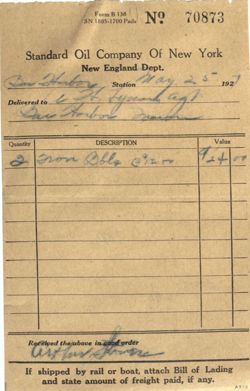 Form B 138
SN 1805-1700 Pads
No 70873
Standard Oil Company Of New York
New England Dept.
Bar Harbor, Station May 25 192
Delivered to
Bar Harbor
Quantity DESCRIPTION Value
2 Iron Bbls @12.00 24 00
Received the above in good order
If shipped by rail or boat, attach Bill of Lading
and state amount of freight paid, if any.